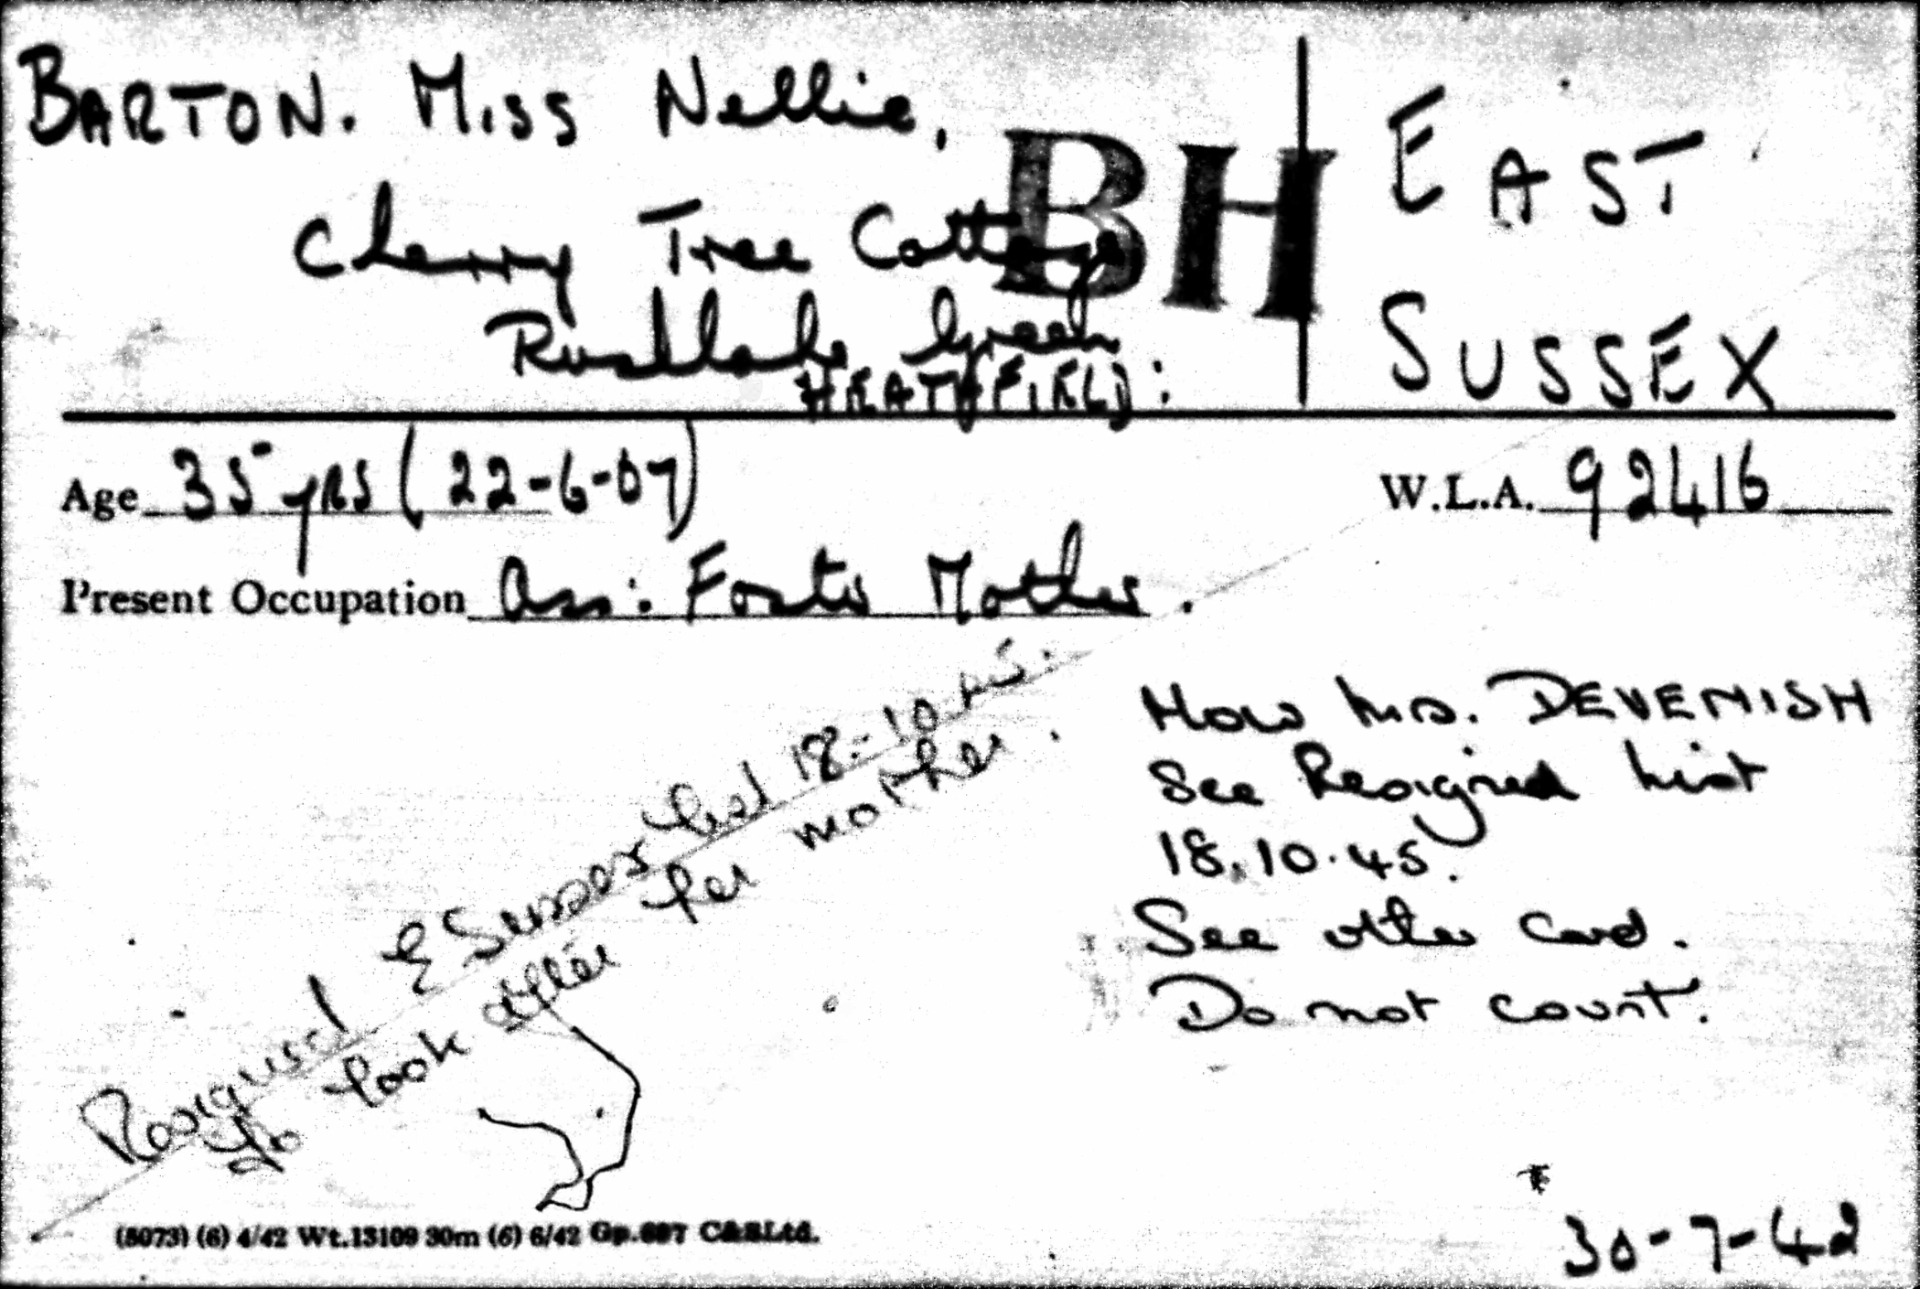 BARTON. Miss Nellie,
BH
EAST
SUSSEX
Cherry Tree Cottage
Rushlake Green
HEATHFIELD:
Age 35 yrs (22-6-07)
W.L.A. 92416
Present Occupation Ass: Foster Mother.
Now Mrs. DEVENISH
See Resigned List
18.10.45.
See other card.
Do not count.
Resigned E Sussex list 18-10-45.
to look after her mother.
30-7-42
(8073) (6) 4/42 Wt.13109 30m (6) 6/42 Gp.697 C&SLtd.